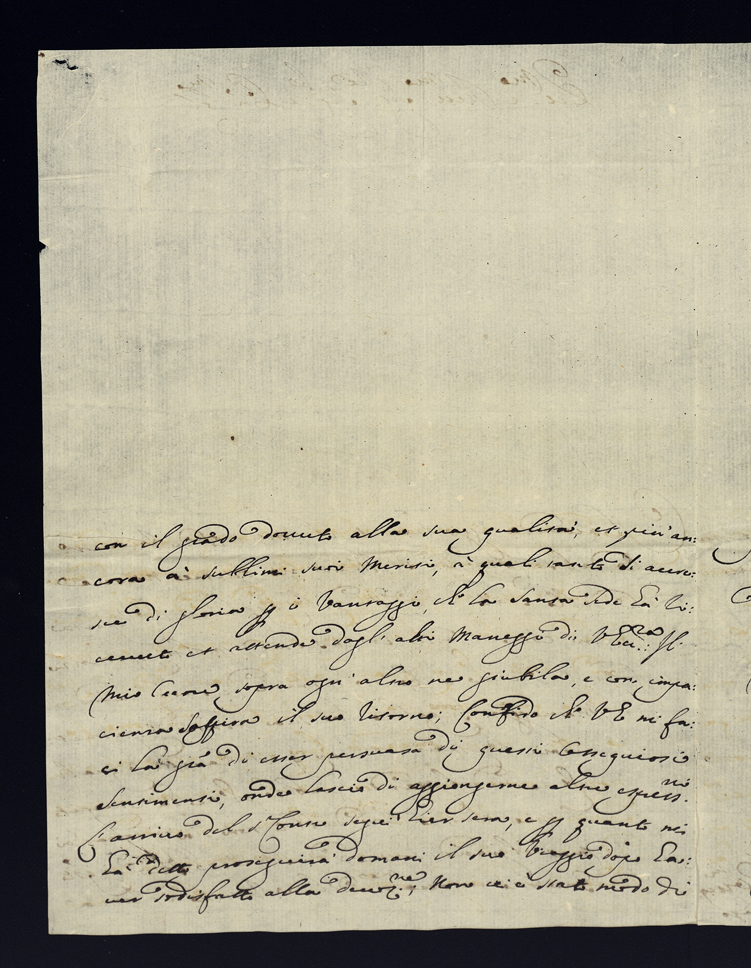 con il grado dovuto alla sua qualità, et più an:
cora à sublimi suoi Meriti, à quali tanto di accre:
sce di gloria p i Vantaggi, che la Santa Sede hà ri:
cevuto et attende dagl'altri Maneggi di VEcc.za: Il
mio Cuore sopra ogn'altro ne giubila, e con impa:
cienza sospira il suo ritorno; Confido che VE mi fa:
ci la grã di esser persuasa di questi ossequiosi
sentimenti, onde lascio di aggiongerne altre espress.ni
L'arrivo del s.r Conte seguì hier sera, e p quanto mi
hà detto proseguirà domani il suo Viaggio dopo ha:
ver sodisfatto alla devoz.ne; Non vi è stato modo di